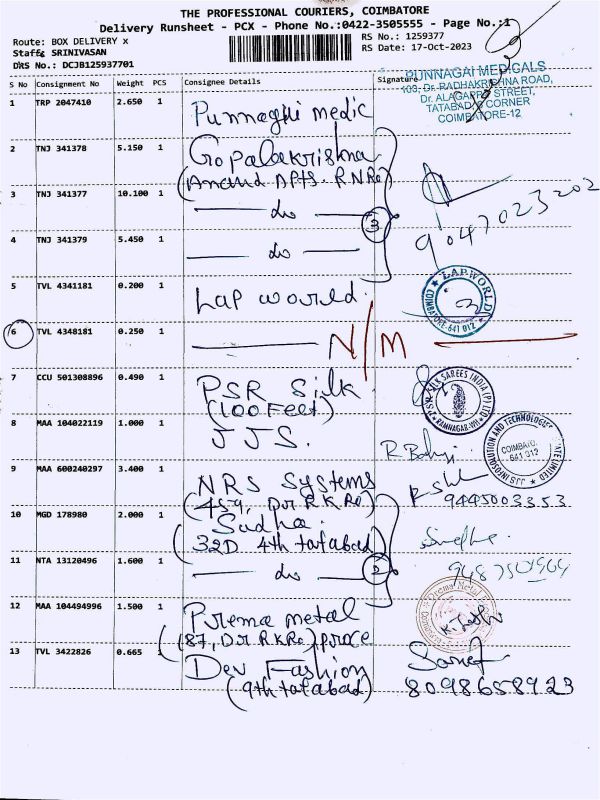 THE PROFESSIONAL COURIERS, COIMBATORE
Delivery Runsheet - PCX - Phone No.:0422-3505555 - Page No.:1
Route: BOX DELIVERY x
Staff& SRINIVASAN
DRS No.: DCJB125937701
RS No.: 1259377
RS Date: 17-Oct-2023
S No Consignment No Weight PCS Consignee Details Signature
PUNNAGAI MEDICALS
103, Dr. RADHAKRISHNA ROAD,
Dr. ALAGAPPA STREET,
TATABAD, CORNER
COIMBATORE-12
1 TRP 2047410 2.650 1 Punnaghi medic
2 TNJ 341378 5.150 1 Gopalakrishna
(Anand Apts. R.N Ro)
3 TNJ 341377 10.100 1 do
3
9047023202
4 TNJ 341379 5.450 1 do
5 TVL 4341181 0.200 1 Lap world.
LAP WORLD
COIMBATORE-641 012
6 TVL 4348181 0.250 1 N/M
7 CCU 501308896 0.490 1 PSR Silk
(100 Feet)
P.S.R. SILK SAREES INDIA (P) LTD
RAMNAGAR
8 MAA 104022119 1.000 1 JJS.
JJS INFOSOLUTION AND TECHNOLOGIES PRIVATE LIMITED
COIMBATO
641 012
9 MAA 600240297 3.400 1 NRS Systems
(459, Dr R K Ro)
9445003353
10 MGD 178980 2.000 1 Sudha.
(32D 4th tatabad)
11 NTA 13120496 1.600 1 do
2
12 MAA 104494996 1.500 1 Prema metal
(187, Dr R K Ro) proce
Prema Metal
13 TVL 3422826 0.665 1 Dev Fashion
(9th tatabad)
8098658923